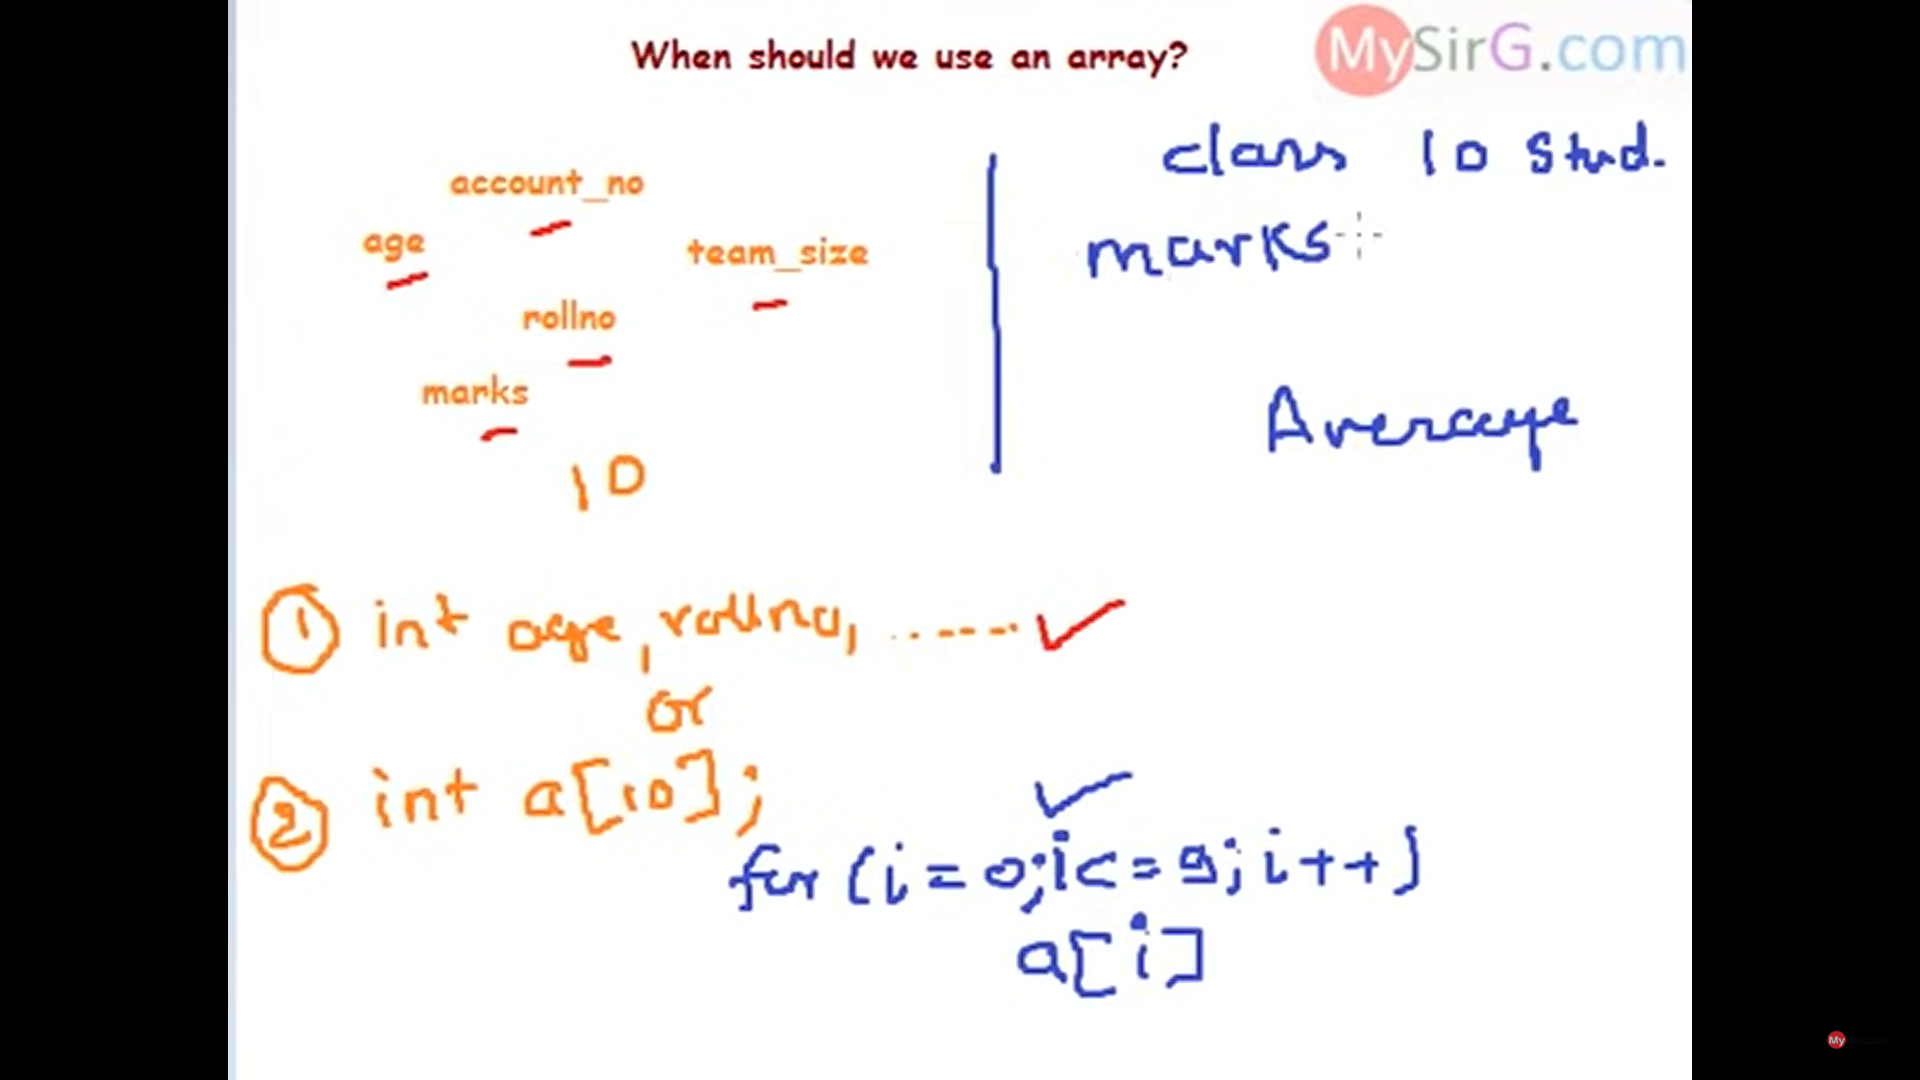 When should we use an array?
MySirG.com
account_no
age
team_size
rollno
marks
10
class 10 stud.
marks
Average
1 int age, rollno, ......
or
2 int a[10];
for (i=0; i<=9; i++)
a[i]
My